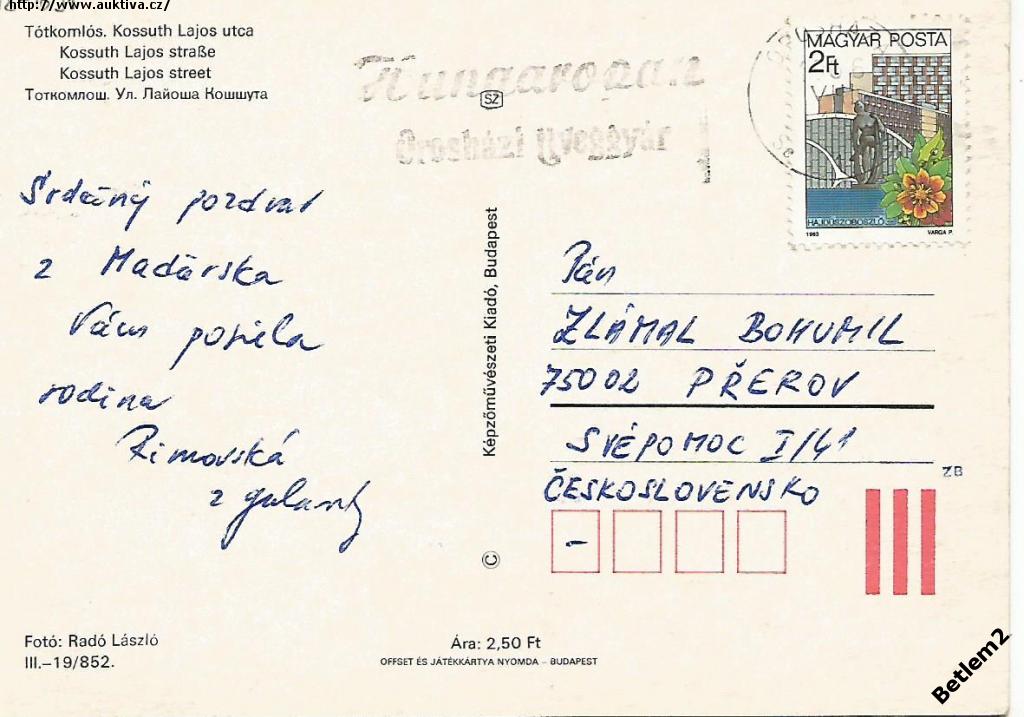 http://www.auktiva.cz/
Tótkomlós. Kossuth Lajos utca
Kossuth Lajos straße
Kossuth Lajos street
Тоткомлош. Ул. Лайоша Кошшута
Hungaropan
Orosházi Üveggyár
SZ
MAGYAR POSTA
2Ft
HAJDÚSZOBOSZLÓ
1983 VARGA P.
Srdečný pozdrav
z Maďarska
Vám posiela
rodina
Rimovská
z Galanty
Képzőművészeti Kiadó, Budapest
©
Pán
ZLÁMAL BOHUMIL
75002 PŘEROV
SVÉPOMOC I/41
ČESKOSLOVENSKO
ZB
-
Fotó: Radó László
III.–19/852.
Ára: 2,50 Ft
OFFSET ÉS JÁTÉKKÁRTYA NYOMDA – BUDAPEST
Betlem2